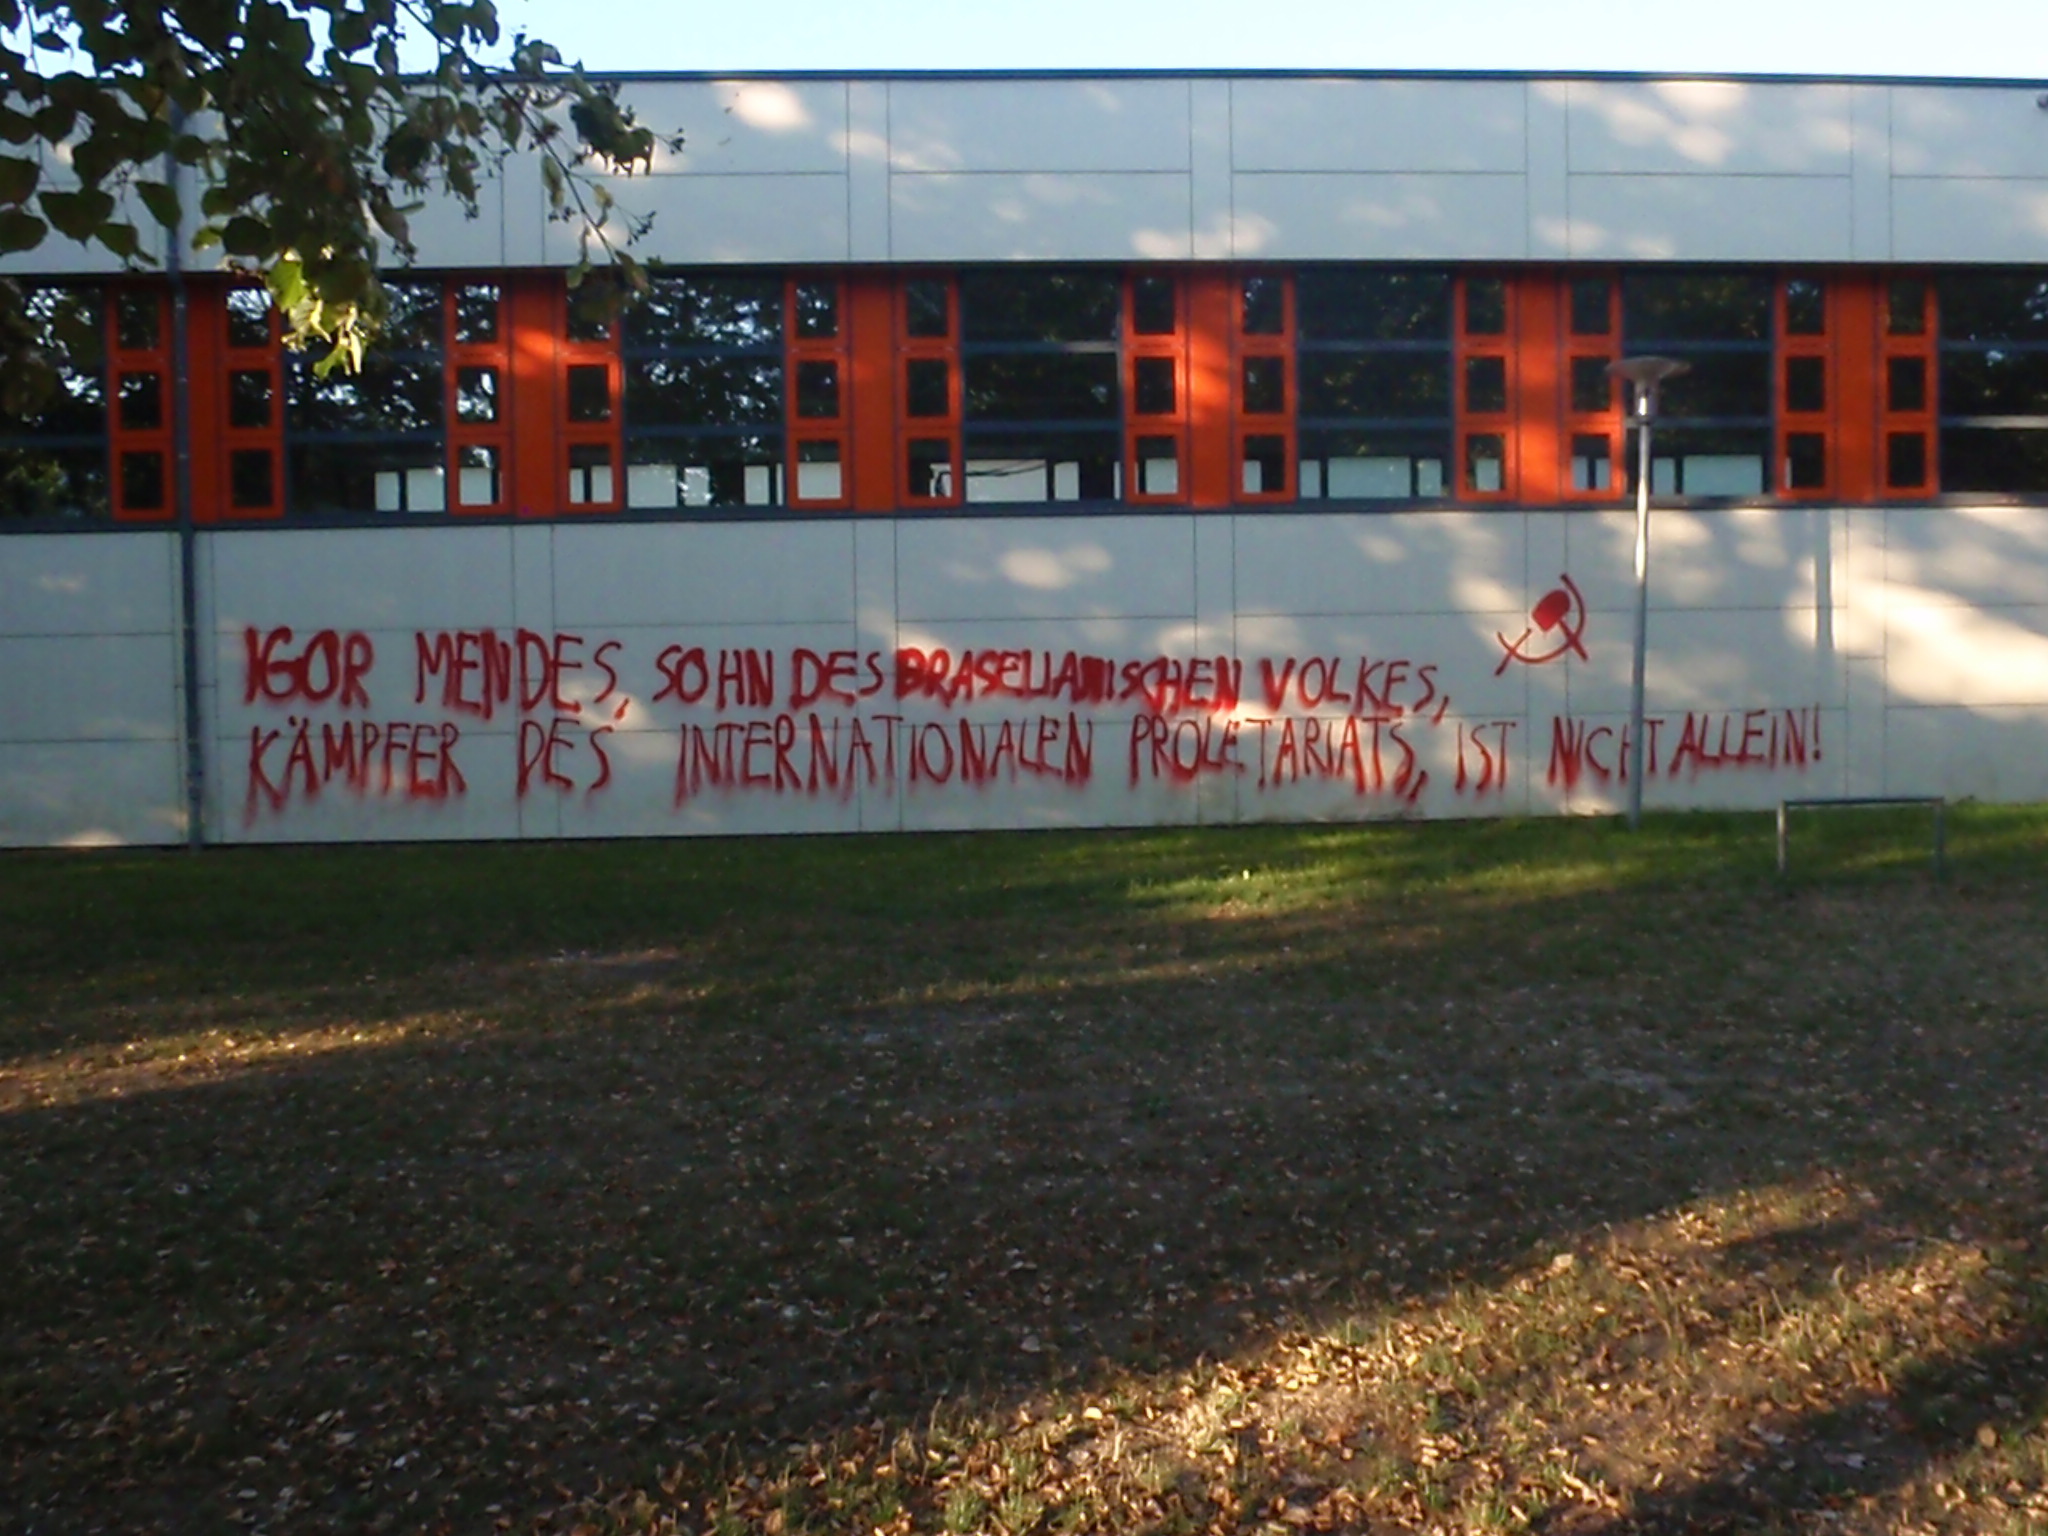 IGOR MENDES, SOHN DES BRASELIANISCHEN VOLKES,
KÄMPFER DES INTERNATIONALEN PROLETARIATS, IST NICHT ALLEIN!